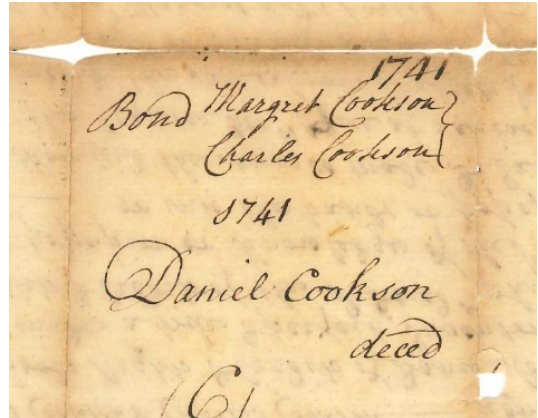 1741
Bond Margret Cookson }
Charles Cookson }
1741
Daniel Cookson
deced
C